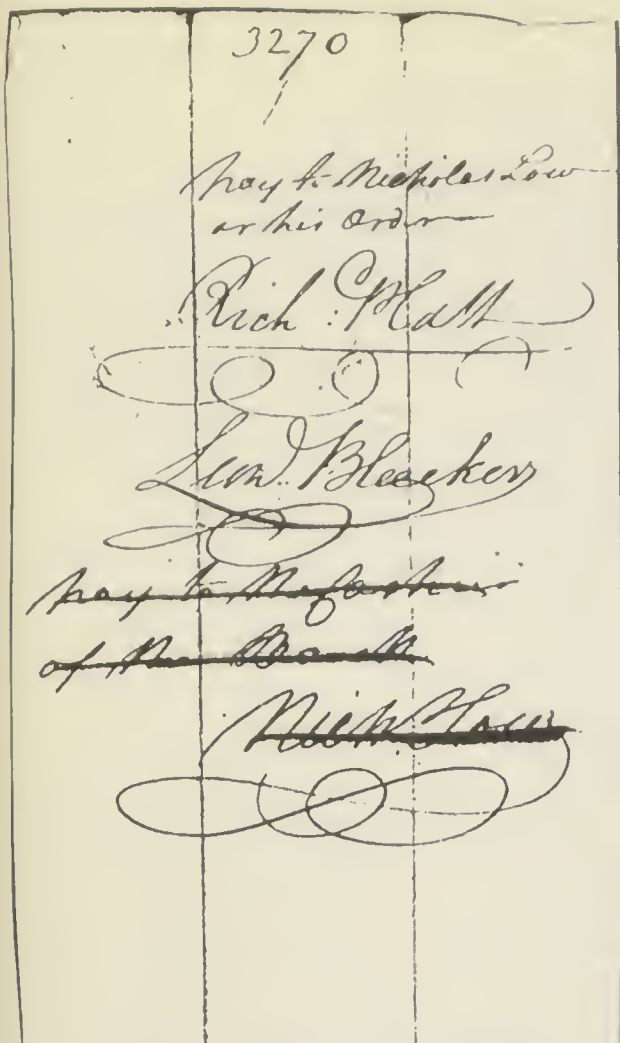 3270
pay to Nicholas Low
or his Order
Rich: Platt
Leond. Bleecker
pay to the Cashier
of the Bank
Nich. Low